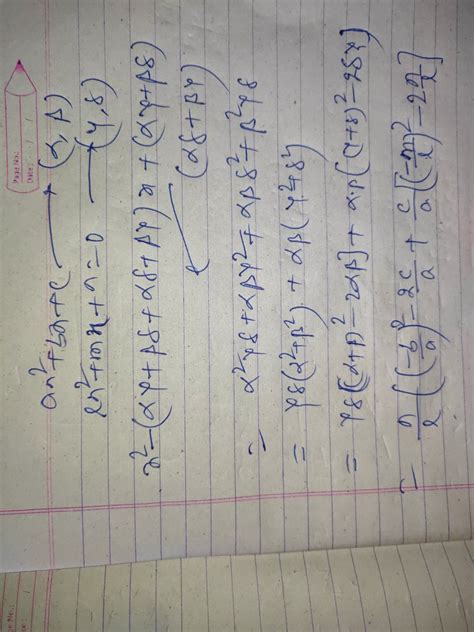 Page No.:
Date: / /
ax²+bx+c ⟶ (α, β)
lx²+mx+n=0 ⟶ (γ, δ)
x²-(αγ+βδ+αδ+βγ)x+(αγ+βδ)
(αδ+βγ)
= α²γδ+αβγ²+αβδ²+β²γδ
= γδ(α²+β²)+αβ(γ²+δ²)
= γδ[(α+β)²-2αβ]+αβ[(γ+δ)²-2δγ]
= n/l [(-b/a)²-2c/a]+c/a[(-m/l)²-2n/l]